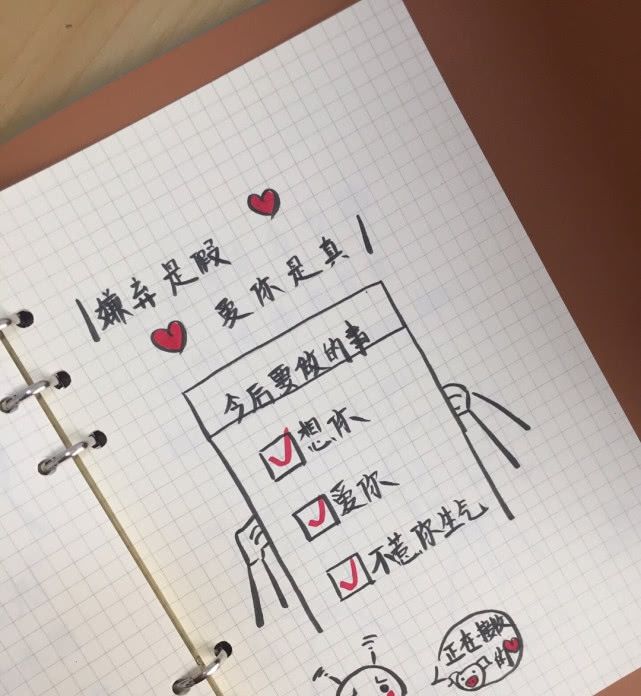 嫌弃是假
爱你是真
今后要做的事
想你
爱你
不惹你生气
正在接收
的